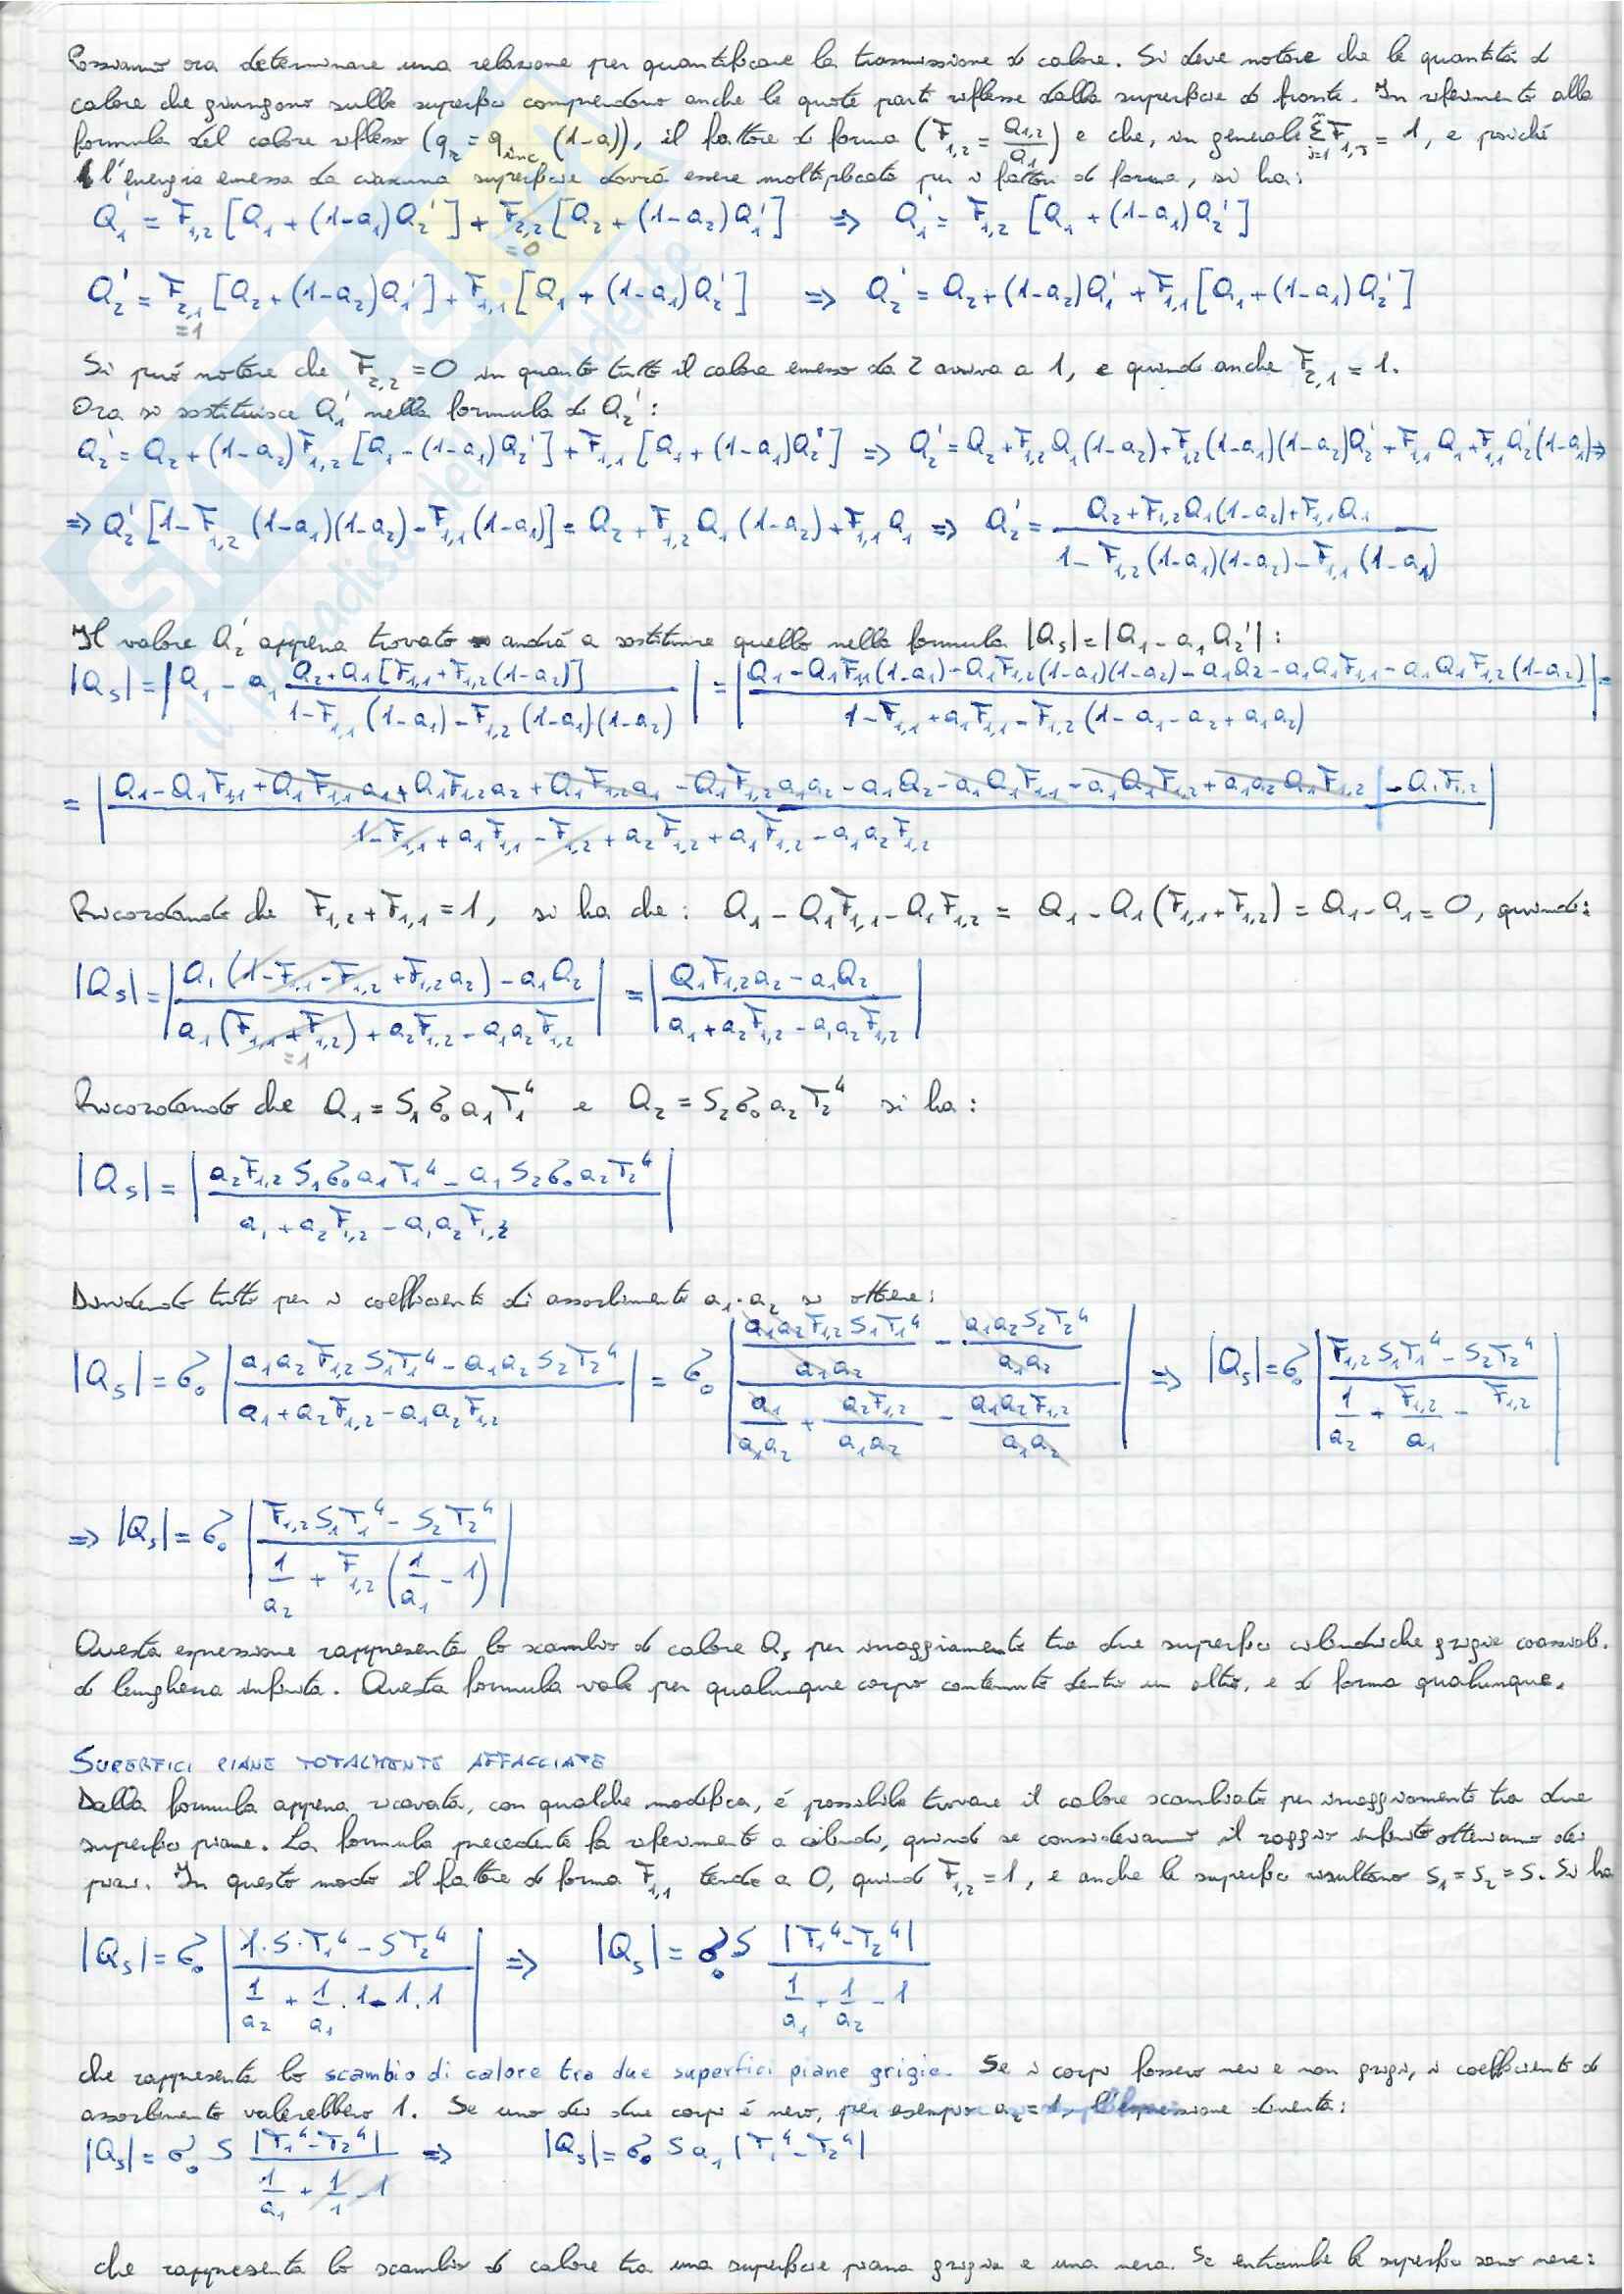 Possiamo ora determinare una relazione per quantificare la trasmissione di calore. Si deve notare che le quantità di
calore che giungono sulle superfici comprendono anche le quote parti riflesse dalla superficie di fronte. In riferimento alla
formula del calore riflesso (q_r = q_inc (1-a)), il fattore di forma (F_1,2 = Q_1,2/Q_1) e che, in generale Σ F_1,J = 1, e poiché
l'energia emessa da ciascuna superficie dovrà essere moltiplicata per i fattori di forma, si ha:
Q_1' = F_1,2 [Q_1 + (1-a_1)Q_2'] + F_2,2 [Q_2 + (1-a_2)Q_1'] => Q_1' = F_1,2 [Q_1 + (1-a_1)Q_2']
=0
Q_2' = F_2,1 [Q_2 + (1-a_2)Q_1'] + F_1,1 [Q_1 + (1-a_1)Q_2'] => Q_2' = Q_2 + (1-a_2)Q_1' + F_1,1 [Q_1 + (1-a_1)Q_2']
=1
Si può notare che F_2,2 = 0 in quanto tutto il calore emesso da 2 arriva a 1, e quindi anche F_2,1 = 1.
Ora si sostituisce Q_1' nella formula di Q_2':
Q_2' = Q_2 + (1-a_2)F_1,2 [Q_1 - (1-a_1)Q_2'] + F_1,1 [Q_1 + (1-a_1)Q_2'] => Q_2' = Q_2 + F_1,2 Q_1 (1-a_2) + F_1,2 (1-a_1)(1-a_2)Q_2' + F_1,1 Q_1 + F_1,1 Q_2' (1-a_1) =>
=> Q_2' [1 - F_1,2 (1-a_1)(1-a_2) - F_1,1 (1-a_1)] = Q_2 + F_1,2 Q_1 (1-a_2) + F_1,1 Q_1 => Q_2' = (Q_2 + F_1,2 Q_1 (1-a_2) + F_1,1 Q_1) / (1 - F_1,2 (1-a_1)(1-a_2) - F_1,1 (1-a_1))
Il valore Q_2' appena trovato andrà a sostituire quello nella formula |Q_s| = |Q_1 - a_1 Q_2'|:
|Q_s| = |Q_1 - a_1 (Q_2 + Q_1 [F_1,1 + F_1,2 (1-a_2)]) / (1 - F_1,1 (1-a_1) - F_1,2 (1-a_1)(1-a_2))| = |(Q_1 - Q_1 F_1,1 (1-a_1) - Q_1 F_1,2 (1-a_1)(1-a_2) - a_1 Q_2 - a_1 Q_1 F_1,1 - a_1 Q_1 F_1,2 (1-a_2)) / (1 - F_1,1 + a_1 F_1,1 - F_1,2 (1 - a_1 - a_2 + a_1 a_2))| =
= |(Q_1 - Q_1 F_1,1 + Q_1 F_1,1 a_1 + Q_1 F_1,2 a_2 + Q_1 F_1,2 a_1 - Q_1 F_1,2 a_1 a_2 - a_1 Q_2 - a_1 Q_1 F_1,1 - a_1 Q_1 F_1,2 + a_1 a_2 Q_1 F_1,2 | - Q_1 F_1,2) / (1 - F_1,1 + a_1 F_1,1 - F_1,2 + a_2 F_1,2 + a_1 F_1,2 - a_1 a_2 F_1,2)|
Ricordando che F_1,2 + F_1,1 = 1, si ha che: Q_1 - Q_1 F_1,1 - Q_1 F_1,2 = Q_1 - Q_1 (F_1,1 + F_1,2) = Q_1 - Q_1 = 0, quindi:
|Q_s| = |(Q_1 (1 - F_1,1 - F_1,2 + F_1,2 a_2) - a_1 Q_2) / (a_1 (F_1,1 + F_1,2) + a_2 F_1,2 - a_1 a_2 F_1,2)| = |(Q_1 F_1,2 a_2 - a_1 Q_2) / (a_1 + a_2 F_1,2 - a_1 a_2 F_1,2)|
=1
Ricordando che Q_1 = S_1 σ_0 a_1 T_1^4 e Q_2 = S_2 σ_0 a_2 T_2^4 si ha:
|Q_s| = |(a_2 F_1,2 S_1 σ_0 a_1 T_1^4 - a_1 S_2 σ_0 a_2 T_2^4) / (a_1 + a_2 F_1,2 - a_1 a_2 F_1,2)|
Dividendo tutto per i coefficienti di assorbimento a_1·a_2 si ottiene:
|Q_s| = σ_0 |(a_1 a_2 F_1,2 S_1 T_1^4 - a_1 a_2 S_2 T_2^4) / (a_1 + a_2 F_1,2 - a_1 a_2 F_1,2)| = σ_0 |(a_1 a_2 F_1,2 S_1 T_1^4 / a_1 a_2 - a_1 a_2 S_2 T_2^4 / a_1 a_2) / (a_1 / a_1 a_2 + a_2 F_1,2 / a_1 a_2 - a_1 a_2 F_1,2 / a_1 a_2)| => |Q_s| = σ_0 |(F_1,2 S_1 T_1^4 - S_2 T_2^4) / (1/a_2 + F_1,2/a_1 - F_1,2)|
=> |Q_s| = σ_0 |(F_1,2 S_1 T_1^4 - S_2 T_2^4) / (1/a_2 + F_1,2 (1/a_1 - 1))|
Questa espressione rappresenta lo scambio di calore Q_s per irraggiamento tra due superfici cilindriche grigie coassiali,
di lunghezza infinita. Questa formula vale per qualunque corpo contenuto dentro un altro, e di forma qualunque.
SUPERFICI PIANE TOTALMENTE AFFACCIATE
Dalla formula appena ricavata, con qualche modifica, é possibile trovare il calore scambiato per irraggiamento tra due
superfici piane. La formula precedente fa riferimento a cilindri, quindi se consideriamo il raggio infinito otteniamo dei
piani. In questo modo il fattore di forma F_1,1 tende a 0, quindi F_1,2 = 1, e anche le superfici risultano S_1 = S_2 = S. Si ha
|Q_s| = σ_0 |(1·S·T_1^4 - S T_2^4) / (1/a_2 + 1/a_1 · 1 - 1·1)| => |Q_s| = σ_0 S |T_1^4 - T_2^4| / (1/a_1 + 1/a_2 - 1)
che rappresenta lo scambio di calore tra due superfici piane grigie. Se i corpi fossero neri e non grigi, i coefficienti di
assorbimento varrebbero 1. Se uno dei due corpi é nero, per esempio a_2 = 1, l'espressione diventa:
|Q_s| = σ_0 S |T_1^4 - T_2^4| / (1/a_1 + 1/1 - 1) => |Q_s| = σ_0 S a_1 |T_1^4 - T_2^4|
che rappresenta lo scambio di calore tra una superficie piana grigia e una nera. Se entrambe le superfici sono nere: